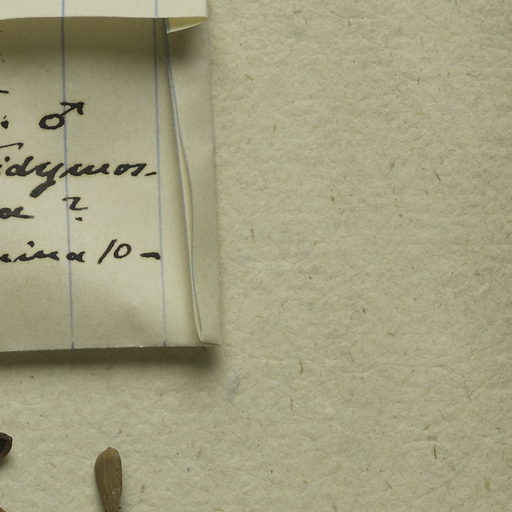 . ♂
idymos-
a ?
mina 10-